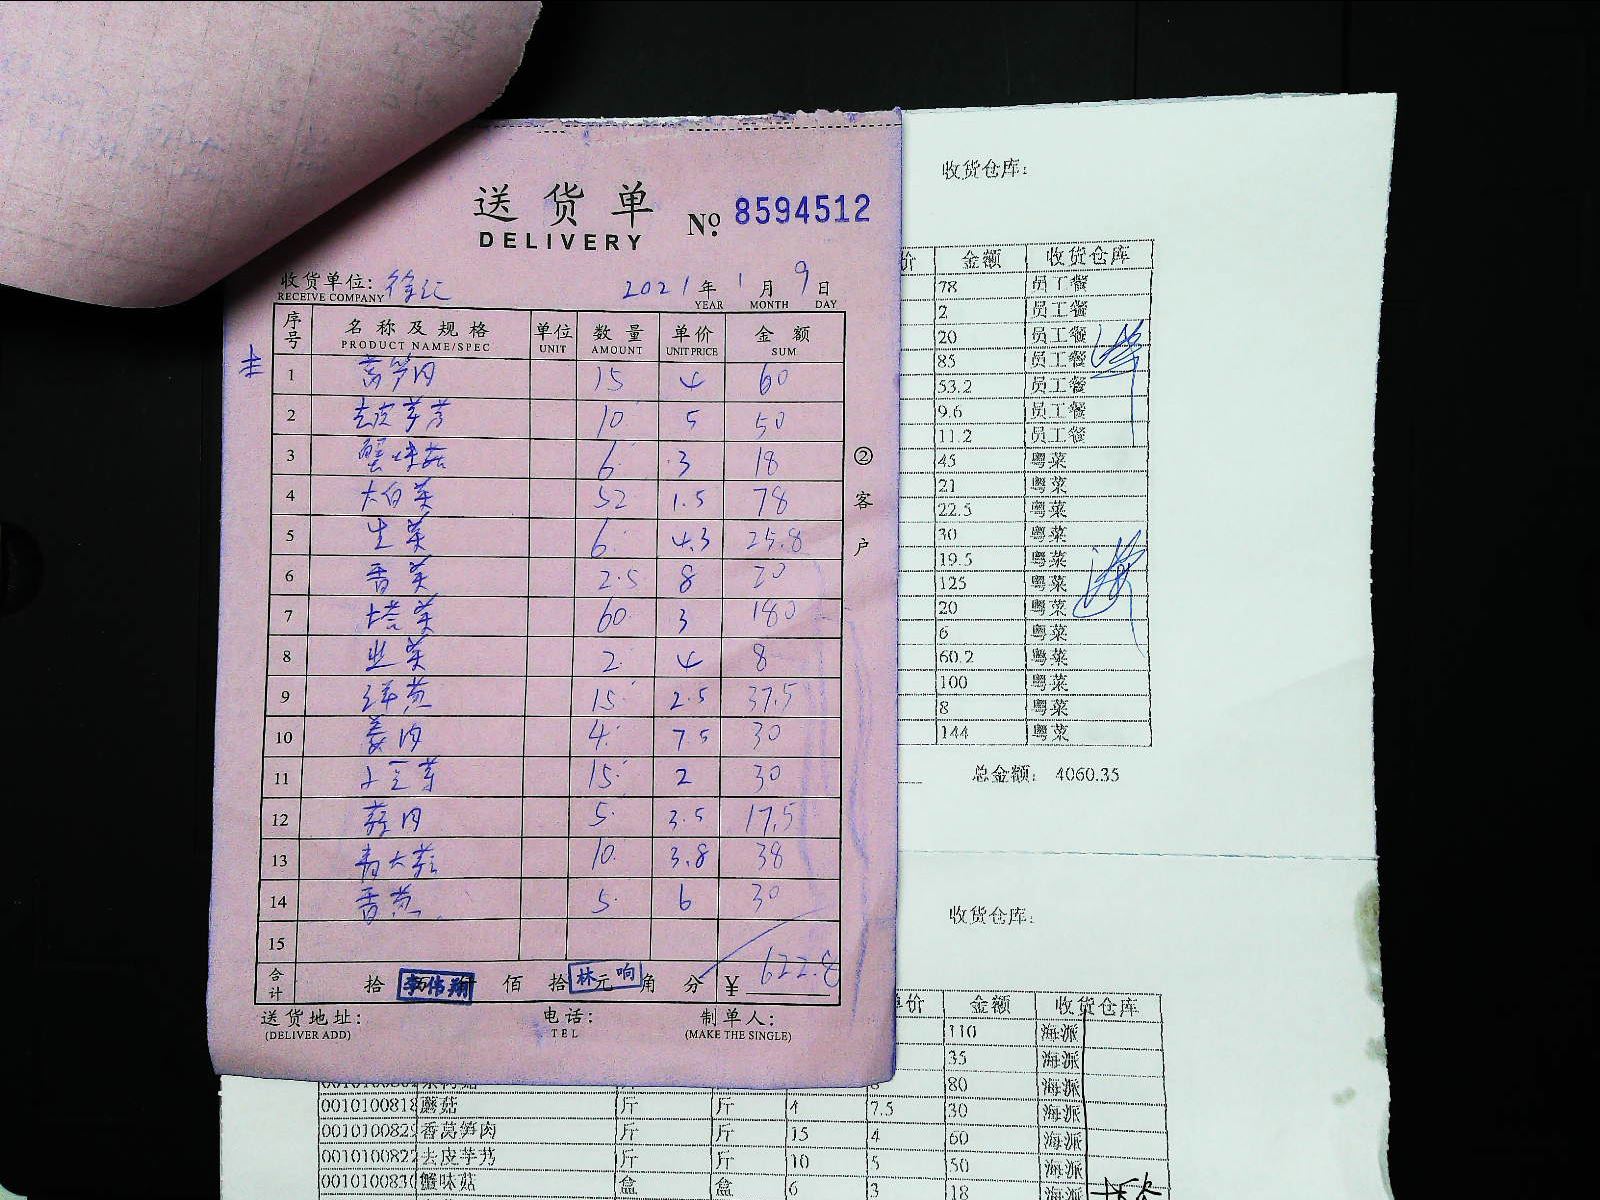 送货单
DELIVERY
No. 8594512
收货单位: 徐汇 2021年1月9日
RECEIVE COMPANY YEAR MONTH DAY
序号 名称及规格 单位 数量 单价 金额
PRODUCT NAME/SPEC UNIT AMOUNT UNIT PRICE SUM
1 莴笋肉 15 4 60
2 去皮芋艿 10 5 50
3 蟹味菇 6 3 18
4 大白菜 52 1.5 78
5 生菜 6 4.3 25.8
6 香菜 2.5 8 20
7 塔菜 60 3 180
8 2 4 8
9 洋葱 15 2.5 37.5
10 姜肉 4 7.5 30
11 土豆 15 2 30
12 蒜肉 5 3.5 17.5
13 青大蒜 10 3.8 38
14 香葱 5 6 30
15
合计 拾 佰 拾 元 角 分 ¥ 622.8
李伟翔
林响
送货地址: 电话: 制单人:
(DELIVER ADD) TEL (MAKE THE SINGLE)
②客户
收货仓库:
价 金额 收货仓库
78 员工餐
2 员工餐
20 员工餐
85 员工餐
53.2 员工餐
9.6 员工餐
11.2 员工餐
45 粤菜
21 粤菜
22.5 粤菜
30 粤菜
19.5 粤菜
125 粤菜
20 粤菜
6 粤菜
60.2 粤菜
100 粤菜
8 粤菜
144 粤菜
总金额: 4060.35
收货仓库:
单价 金额 收货仓库
110 海派
35 海派
8 80 海派
0010100818 蘑菇 斤 斤 4 7.5 30 海派
001010082 香莴笋肉 斤 斤 15 4 60 海派
001010082 去皮芋艿 斤 斤 10 5 50 海派
001010083 蟹味菇 盒 盒 6 3 18 海派